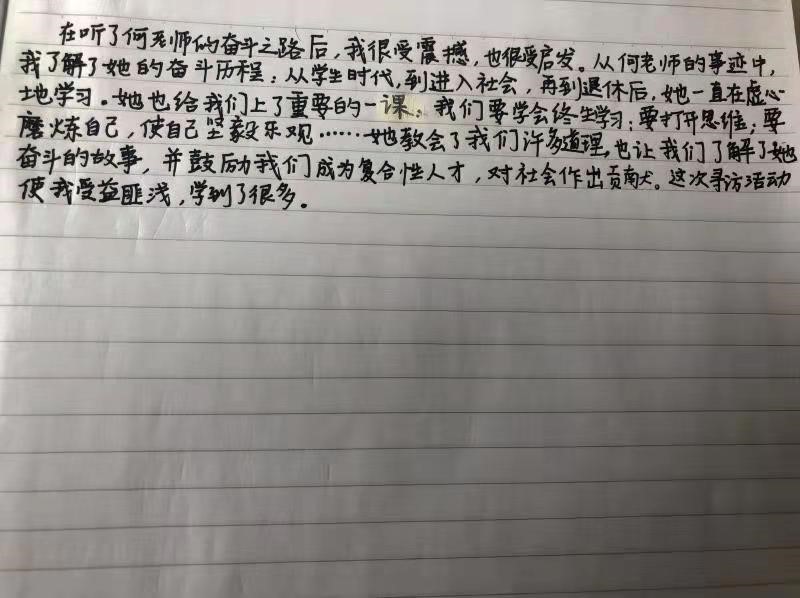 在听了何老师的奋斗之路后，我很受震撼，也很受启发。从何老师的事迹中，
我了解了她的奋斗历程：从学生时代，到进入社会，再到退休后，她一直在虚心
地学习。她也给我们上了重要的一课：我们要学会终生学习；要打开思维；要
磨炼自己，使自己坚毅乐观……她教会了我们许多道理，也让我们了解了她
奋斗的故事，并鼓励我们成为复合性人才，对社会作出贡献。这次寻访活动
使我受益匪浅，学到了很多。